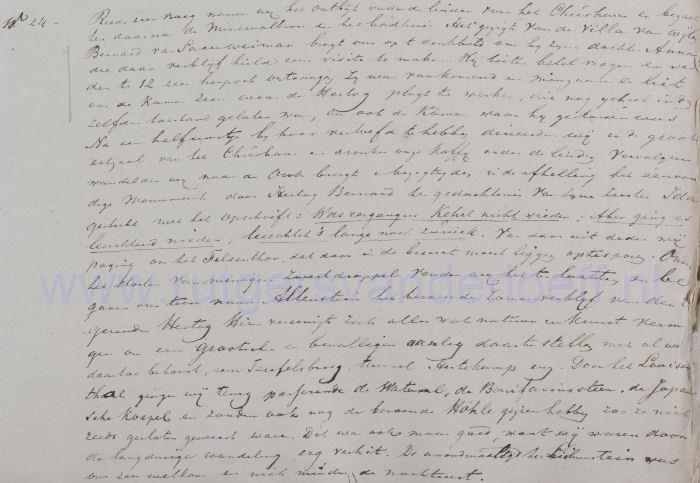 No 24 - Reeds zeer vroeg namen wij het ontbijt onder de linden van het Cheirhaus en
ten daarna de Mineralbron en het badhuis. Het gezigt van de Villa van wijlen
Bernard van Saxenweimar bragt ons op 't denkbeeld om bij zyne dochter Anna
die daar verblyf hield een visite te maken. Wij lieten belet vragen en
den te 12 zeer heusch ontvangen. Zy was voorkomend en minzaam en liet
ons de Kamer zien waar de Hertog plagt te werken, die nog geheel in den
zelfden toestand gelaten was, en ook de Kamer waar hij gestorven was.
Na een half uurtje by haar vertoefd te hebben dineerden wij in de groote
eetzaal van het Cheirhaus en dronken onze Koffy onder de linden. Vervolgens
wandelden wy naar de Oude burgt en bezagtigden in de afhelling het eenvou
dige Monument door Hertog Bernard ter gedachtenis van zyne
gesticht met het opschrift: Was vergangen, Kehrt nicht wieder; Aber ging es
leuchtend nieder, leuchtet's lange noch zurück. Van daar uit deden wij
poging om het Felsenthor, dat daar in de buurt moest liggen op te sporen.
het storten van menige zweetdroppel vonden wy het te laatste, en be
gaven ons toen naar Altenstein het beroemde Zomerverblyf van den re
gerenden Hertog. Hier vereenigt zich alles wat natuur en kunst vermo
gen om een grootschen en bevalligen aanleg daar te stellen met al wat
daartoe behoort, een Teufelsburg, tunnel, Hertekamp enz. Door het Louisen
thal gingen wij terug passerende de Waterval, de Bonifaciussteen, de Japan
sche Koepel en zouden ook nog de beroemde Höhle gezien hebben zoo ze niet
reeds gesloten geweest ware. Dit was ook maar goed, want wij waren door
de langdurige wandeling erg verhit. De avondmaaltijd
ons zeer welkom en niet minder de nachtrust.
www.rutgersvanderloeff.nl